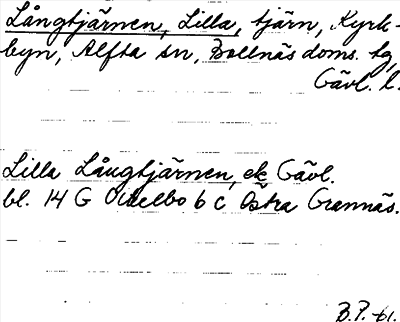 Långtjärnen, Lilla, tjärn, Kyrk-
byn, Alfta sn, Bollnäs doms. tg,
Gävl. l.
Lilla Långtjärnen, ek Gävl.
bl. 14 G Ockelbo 6 c Östra Grannäs.
B.P. bl.